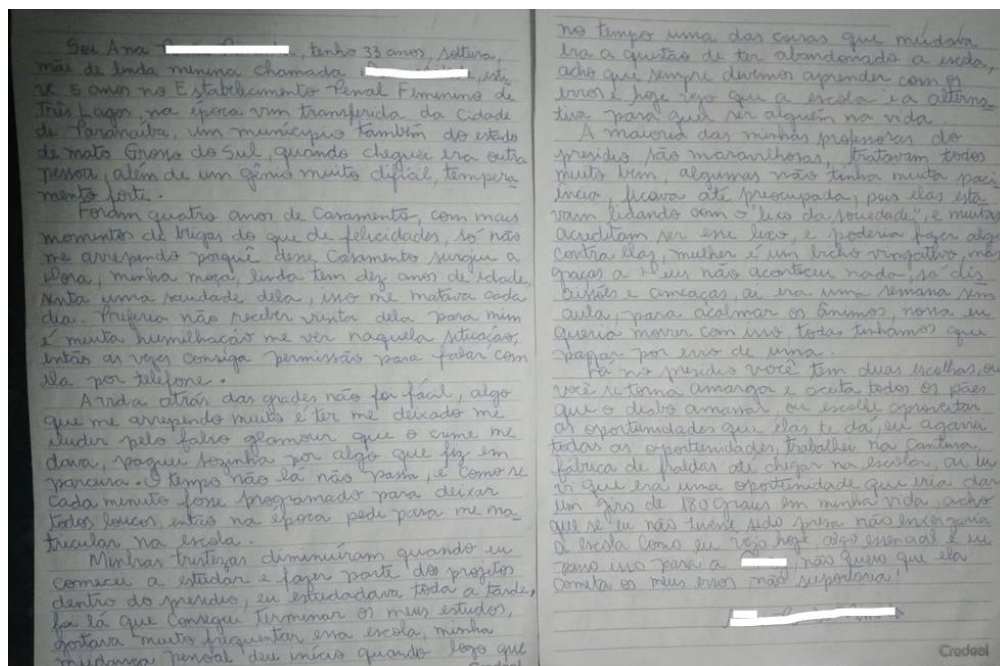 Sou Ana , tenho 33 anos, solteira,
mãe de linda menina chamada , esti
ve 5 anos no Estabelecimento Penal Feminino de
Três Lagos, na época vim transferida da Cidade
de Paranaíba, um município também do estado
de mato Grosso do Sul, quando cheguei era outra
pessoa, além de um gênio muito difícial, tempera-
mento forte.
Foram quatro anos de Casamento, com mais
momentos de brigas do que de felicidades, só não
me arrependo porquê desse Casamento surgiu a
minha moça, linda tem dez anos de idade,
sinta uma saudade dela, isso me matava cada
dia. Preferia não receber visita dela para mim
é muita humilhação me ver naquela situação,
então as vezes consiga permissão para falar com
ela por telefone.
A vida atrás das grades não foi fácil, algo
que me arrependo muito é ter me deixado me
iludir pelo falso glamour que o crime me
dava, paguei sozinha por algo que fiz em
parceria. O tempo não lá não passa, é como se
cada minuto fosse programado para deixar
todos loucos, então na época pede para me ma-
tricular na escola.
Minhas tristezas diminuíram quando eu
comecei a estudar e fazer parte dos projetos
dentro do presídio, eu estudadava toda a tarde,
foi lá que consegui terminar os meus estudos,
gostava muito frequentar essa escola, minha
mudança pessoal deu início quando logo que
no tempo uma das coisas que mudava
era a questão de ter abandonado a escola,
acho que sempre devemos aprender com os
erros e hoje vejo que a escola é a alterna-
tiva para quil ser alguém na vida.
A maioria das minhas professoras do
presídio são maravilhosas, tratavam todos
muito bem, algumas não tinha muita paci
ência, ficava até preocupada, pois elas esta
vam lidando com o "lixo da sociedade", e muitas
acreditam ser esse lixo, e poderia fazer algo
contra elas, mulher é um bicho vingativo, mas
graças a Deus não aconteceu nada, só dis
cussões e ameaças, aí era uma semana sem
aula, para acalmar os ânimos, nossa eu
queria morrer com isso, toda tinhamos que
pagar por erro de uma.
Lá no presídio você tem duas escolhas, ou
você se torna amarga e aceita todos os pães
que o diabo amassar, ou escolhe aproveitar
as oportunidades que elas te dá, eu agarrei
todas as oportunidades, trabalhei na Cantina,
fábrica de fraldas até chegar na escola, aí eu
vi que era uma oportunidade que iria dar
um giro de 180 graus em minha vida, acho
que se eu não tivesse sido presa não enxergaria
a escola como eu vejo hoje, algo essencial e eu
passo isso para a , não quero que ela
cometa os meus erros, não suportaria!
Credeal
Credeal